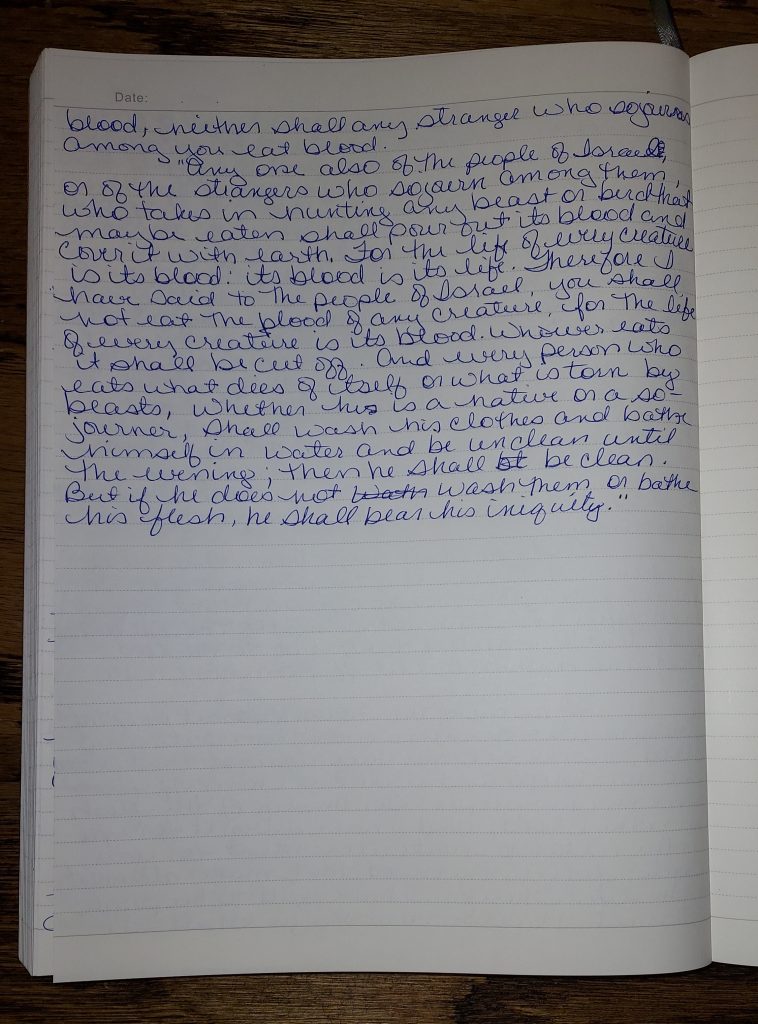 Date:
blood, neither shall any stranger who sojourns
among you eat blood.
"Any one also of the people of Israel,
or of the strangers who sojourn among them,
who takes in hunting any beast or bird that
may be eaten shall pour out its blood and
cover it with earth. For the life of every creature
is its blood: its blood is its life. Therefore I
have said to the people of Israel, you shall
not eat the blood of any creature, for the life
of every creature is its blood. Whoever eats
it shall be cut off. And every person who
eats what dies of itself or what is torn by
beasts, whether his is a native or a so-
journer, shall wash his clothes and bathe
himself in water and be unclean until
the evening; then he shall be clean.
But if he does not wash them or bathe
his flesh, he shall bear his iniquity."